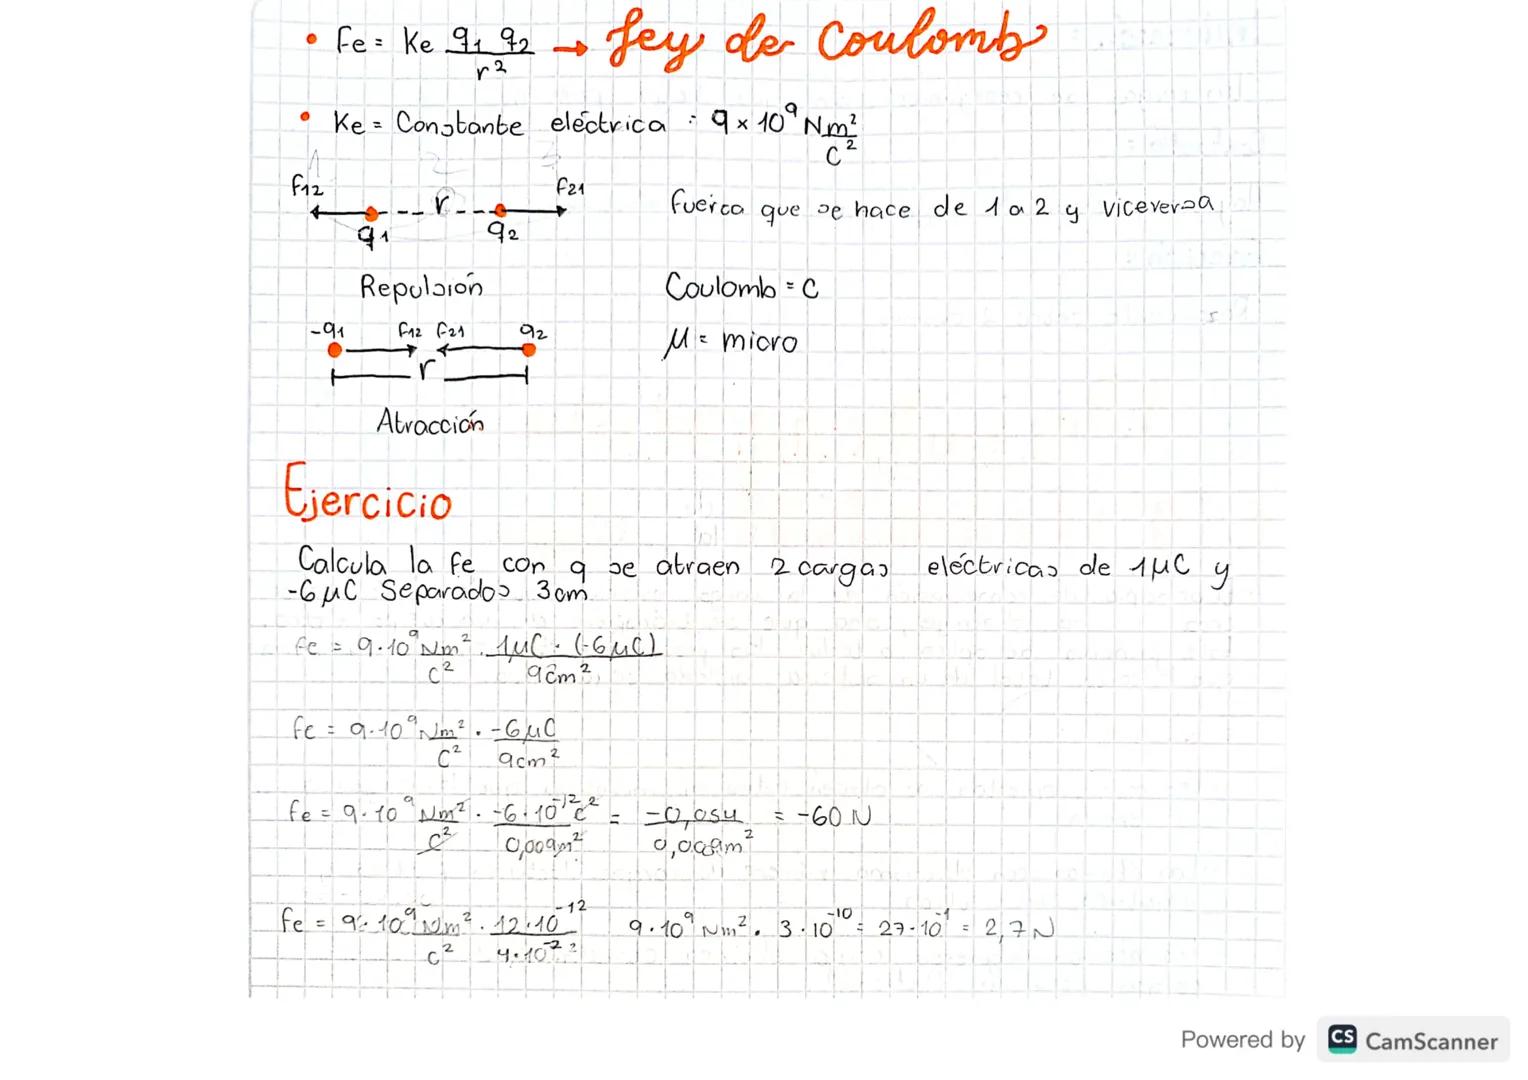 • Fe = Ke q1 q2 / r² → Ley de Coulomb
• Ke = Constante eléctrica : 9 × 10⁹ Nm² / C²
F12 r F21
q1 q2
Fuerca que se hace de 1 a 2 y viceversa
Repulsión
Coulomb = C
-q1 F12 F21 q2
r
μ = micro
Atracción
Ejercicio
Calcula la fe con q se atraen 2 cargas eléctricas de 1μC y
-6μC Separados 3cm
Fe = 9·10⁹ Nm² / C² · 1μC · (-6μC) / 9cm²
Fe = 9·10⁹ Nm² / C² · -6μC / 9cm²
Fe = 9·10⁹ Nm² / C² · -6·10⁻¹² C² / 0,009m² = -0,054 / 0,0009m² = -60 N
Fe = 9·10⁹ Nm² / C² · 12·10⁻¹² / 4·10⁻² 9·10⁹ Nm² · 3·10⁻¹⁰ = 27·10⁻¹ = 2,7 N
Powered by CS CamScanner